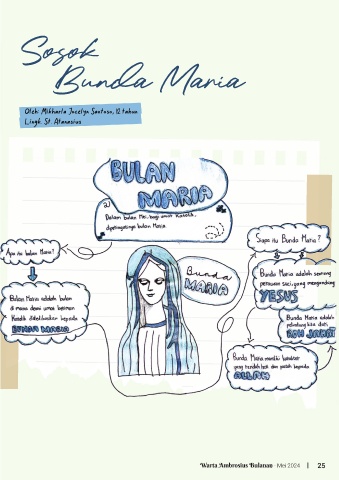 Sosok
Bunda Maria
Oleh: Mikharla Jocelyn Santoso, 12 tahun
Lingk. St. Atanasius
BULAN
MARIA
Dalam bulan Mei, bagi umat Katolik,
diperingatinya bulan Maria.
Apa itu bulan Maria?
Bulan Maria adalah bulan
di mana devosi umat beriman
Katolik didedikasikan kepada
BUNDA MARIA
Bunda
MARIA
Siapa itu Bunda Maria?
Bunda Maria adalah seorang
perawan suci, yang mengandung
YESUS
Bunda Maria adalah
pelindung kita dari
ROH JAHAT
Bunda Maria memiliki karakter
yang rendah hati dan patuh kepada
ALLAH
Warta Ambrosius Bulanan Mei 2024 | 25